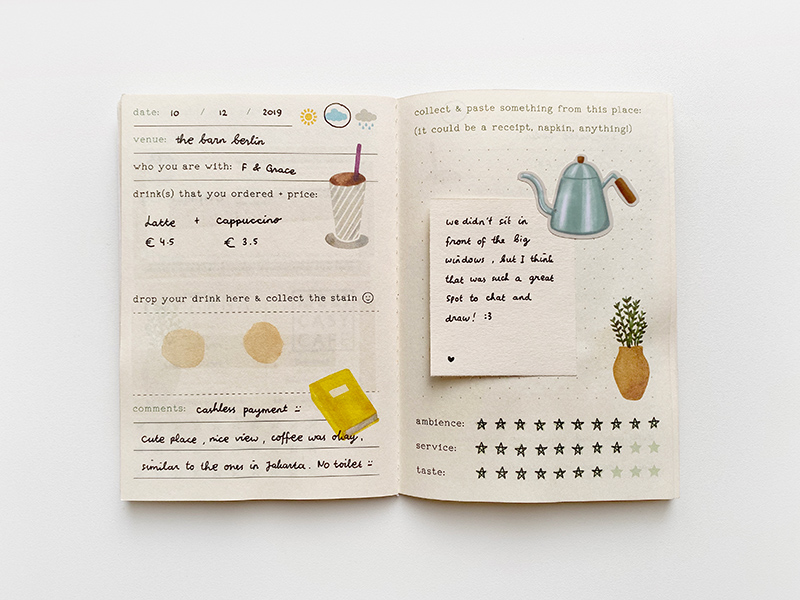 date: 10 / 12 / 2019
venue: the barn berlin
who you are with: F & Grace
drink(s) that you ordered + price:
Latte + Cappuccino
€ 4.5 € 3.5
drop your drink here & collect the stain
comments: cashless payment
cute place, nice view, coffee was okay,
similar to the ones in Jakarta. No toilet
collect & paste something from this place:
(it could be a receipt, napkin, anything!)
we didn't sit in
front of the big
windows, but I think
that was such a great
spot to chat and
draw! :3
ambience:
service:
taste: